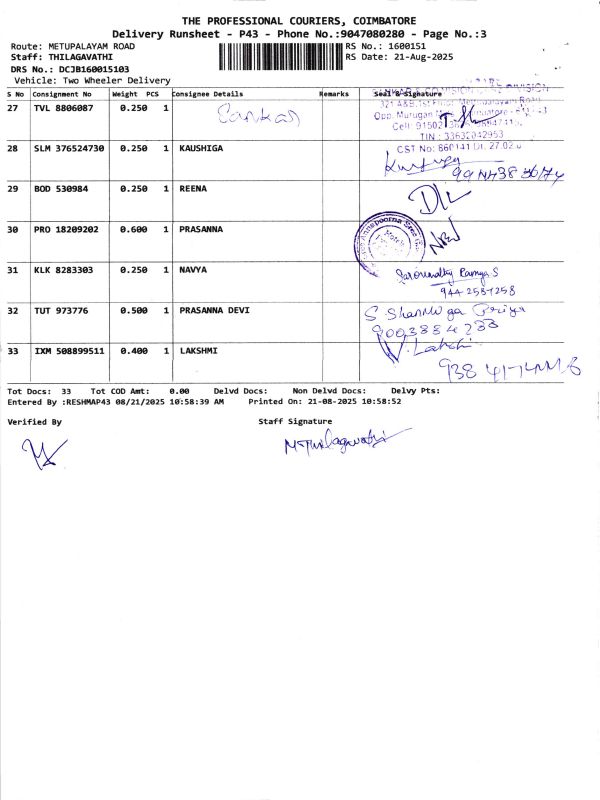 THE PROFESSIONAL COURIERS, COIMBATORE
Delivery Runsheet - P43 - Phone No.:9047080280 - Page No.:3
Route: METUPALAYAM ROAD RS No.: 1600151
Staff: THILAGAVATHI RS Date: 21-Aug-2025
DRS No.: DCJB160015103
Vehicle: Two Wheeler Delivery
S No Consignment No Weight PCS Consignee Details Remarks Seal & Signature
27 TVL 8806087 0.250 1
321 A&B, 1st Floor, Mettupalayam Road
Opp. Murugan
TIN : 33632042953
CST No: 860141 Dt. 27.02.0
28 SLM 376524730 0.250 1 KAUSHIGA
29 BOD 530984 0.250 1 REENA
30 PRO 18209202 0.600 1 PRASANNA
31 KLK 8283303 0.250 1 NAVYA
944 2587258
32 TUT 973776 0.500 1 PRASANNA DEVI
S Shanmuga Priya
9003884233
33 IXM 508899511 0.400 1 LAKSHMI
Tot Docs: 33 Tot COD Amt: 0.00 Delvd Docs: Non Delvd Docs: Delvy Pts:
Entered By :RESHMAP43 08/21/2025 10:58:39 AM Printed On: 21-08-2025 10:58:52
Verified By Staff Signature
M.Thilagavathi